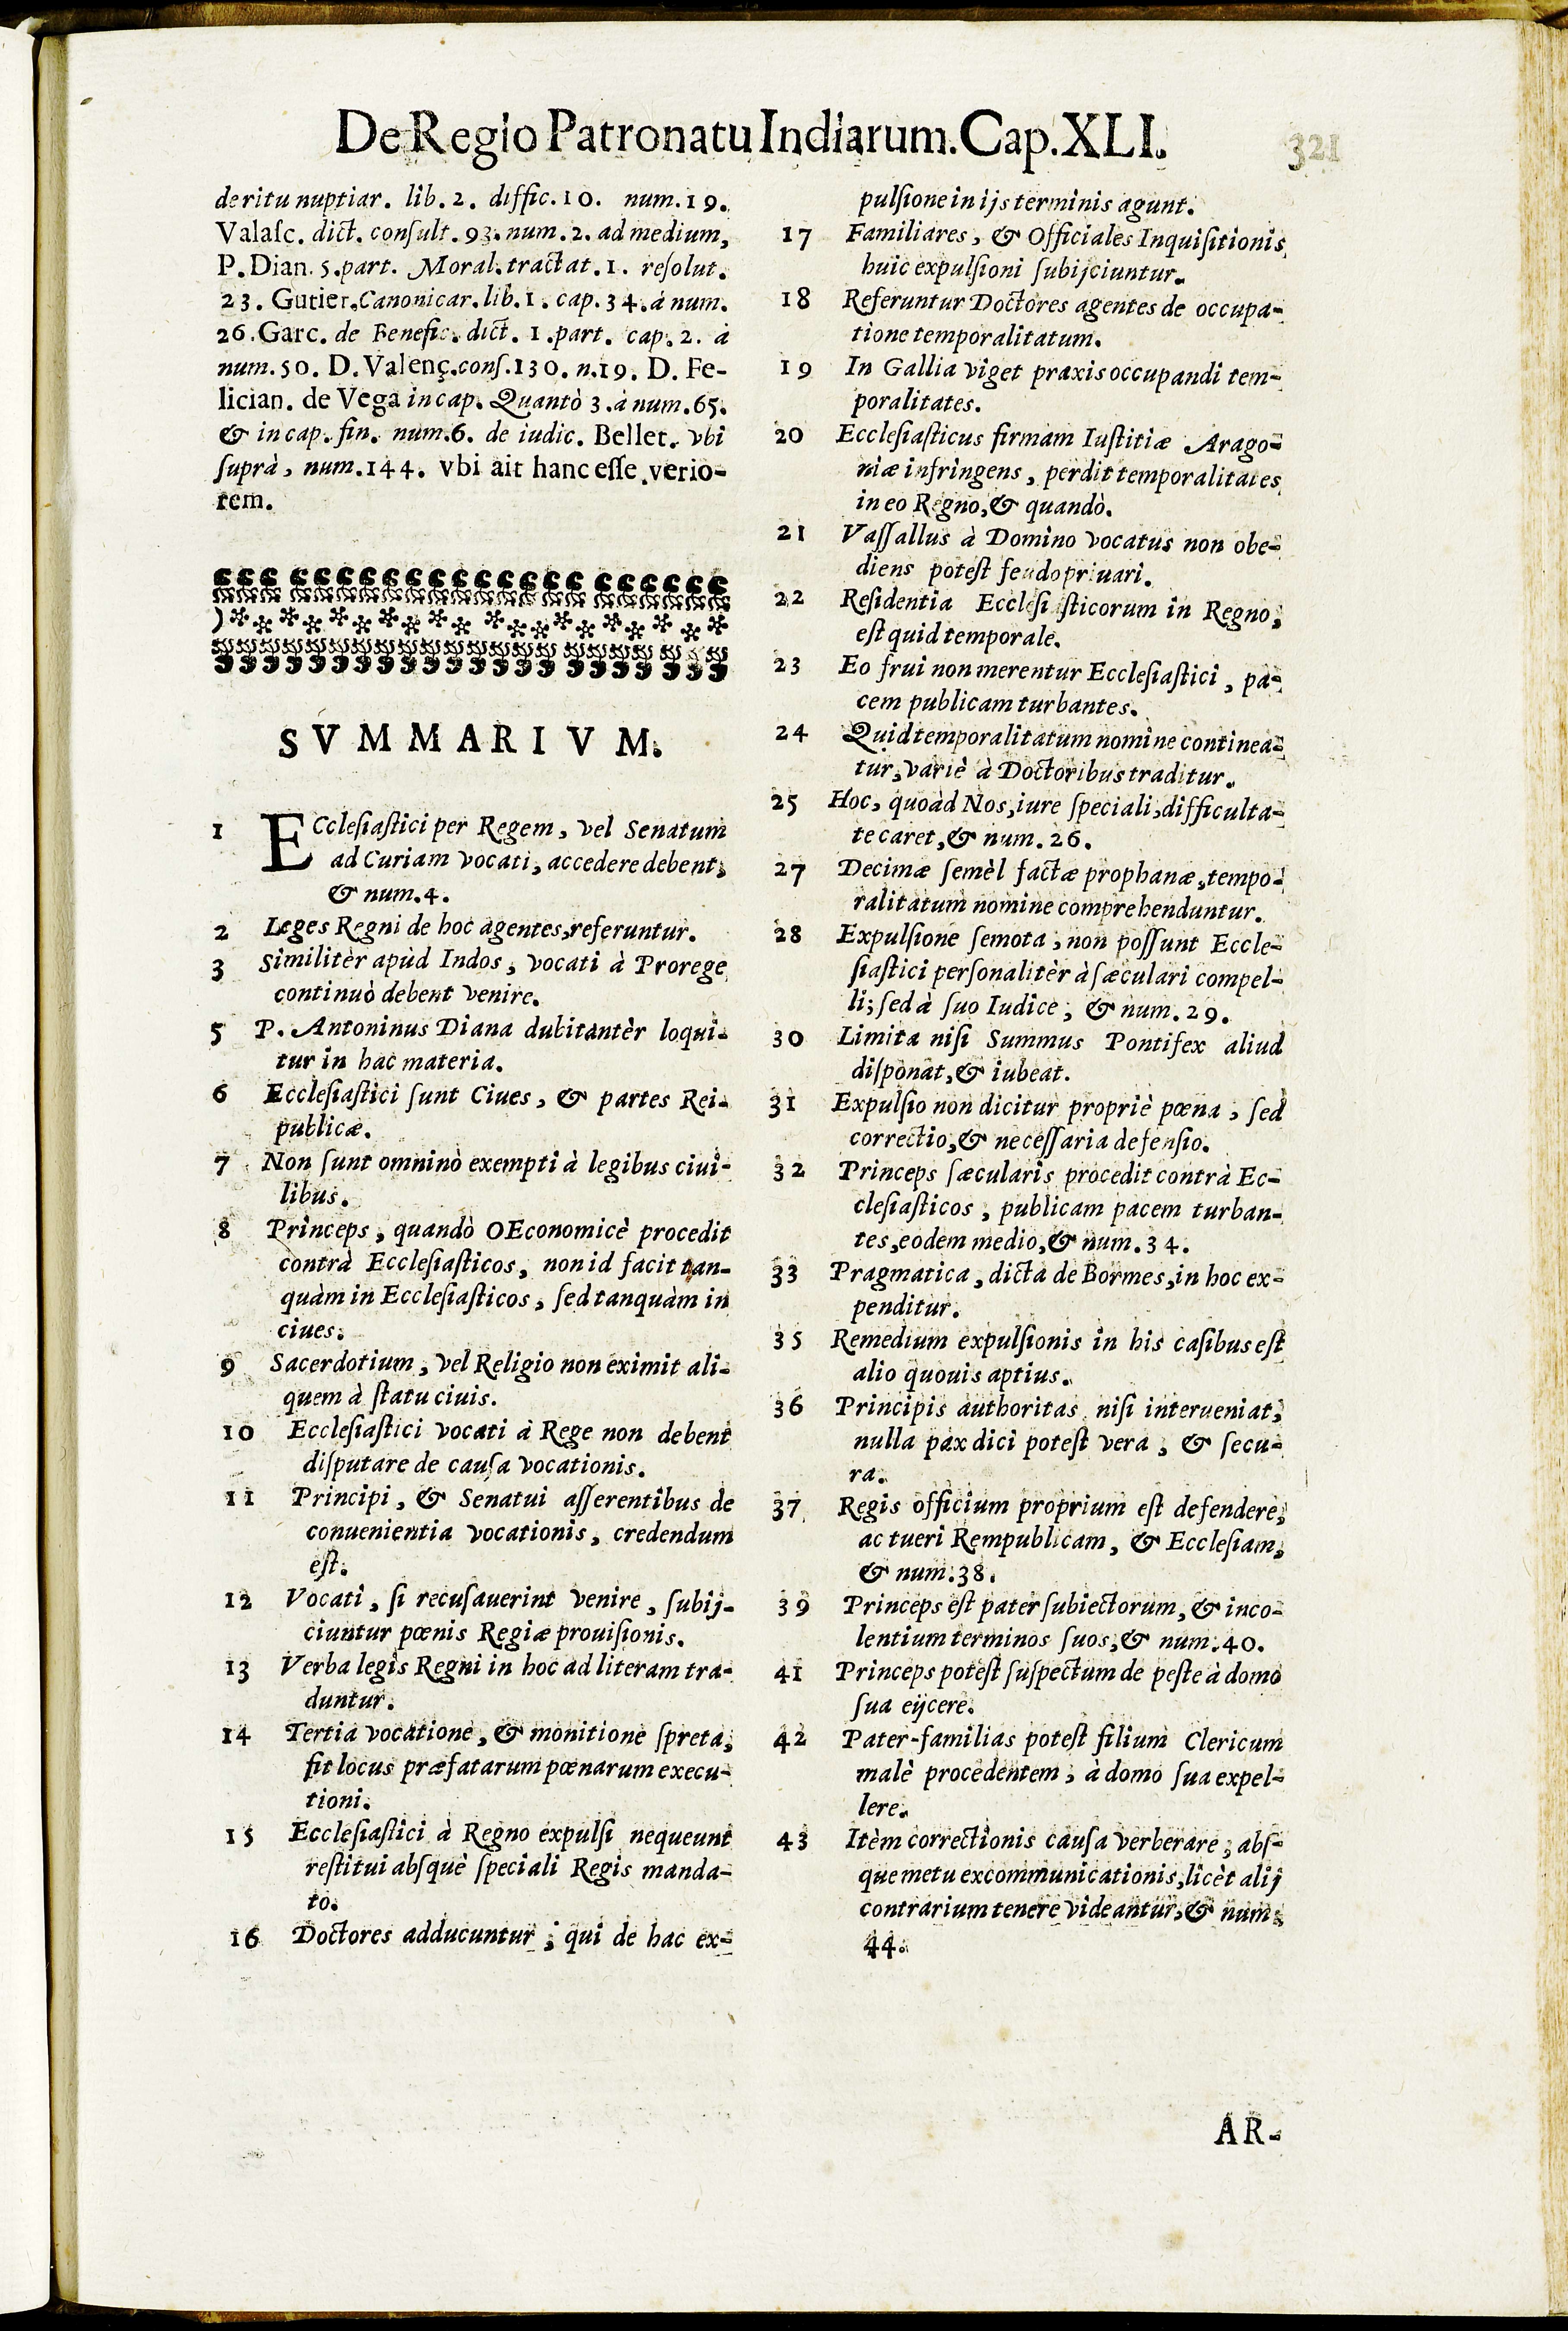 De Regio Patronatu Indiarum. Cap. XLI. 321
de ritu nuptiar. lib. 2. diffic. 10. num. 19.
Valasc. dict. consult. 93. num. 2. ad medium,
P. Dian. 5. part. Moral. tractat. 1. resolut.
23. Gutier. Canonicar. lib. 1. cap. 34. à num.
26. Garc. de Benefic. dict. 1. part. cap. 2. à
num. 50. D. Valenç. cons. 130. n. 19. D. Fe-
lician. de Vega in cap. Quantò 3. à num. 65.
& in cap. fin. num. 6. de iudic. Bellet. vbi
suprà, num. 144. vbi ait hanc esse verio-
rem.
SVMMARIVM.
1 ECclesiastici per Regem, vel Senatum
ad Curiam vocati, accedere debent,
& num. 4.
2 Leges Regni de hoc agentes, referuntur.
3 Similitèr apùd Indos, vocati à Prorege
continuò debent venire.
5 P. Antoninus Diana dubitantèr loqui-
tur in hac materia.
6 Ecclesiastici sunt Ciues, & partes Rei-
publicæ.
7 Non sunt omninò exempti à legibus ciui-
libus.
8 Princeps, quandò OEconomicè procedit
contrà Ecclesiasticos, non id facit tan-
quàm in Ecclesiasticos, sed tanquàm in
ciues.
9 Sacerdotium, vel Religio non eximit ali-
quem à statu ciuis.
10 Ecclesiastici vocati à Rege non debent
disputare de causa vocationis.
11 Principi, & Senatui asserentibus de
conuenientia vocationis, credendum
est.
12 Vocati, si recusauerint venire, subij-
ciuntur pœnis Regiæ prouisionis.
13 Verba legis Regni in hoc ad literam tra-
duntur.
14 Tertia vocatione, & monitione spreta,
fit locus præfatarum pœnarum execu-
tioni.
15 Ecclesiastici à Regno expulsi nequeunt
restitui absquè speciali Regis manda-
to.
16 Doctores adducuntur, qui de hac ex-
pulsione in ijs terminis agunt.
17 Familiares, & Officiales Inquisitionis
huic expulsioni subijciuntur.
18 Referuntur Doctores agentes de occupa-
tione temporalitatum.
19 In Gallia viget praxis occupandi tem-
poralitates.
20 Ecclesiasticus firmam Iustitiæ Arago-
niæ infringens, perdit temporalitates
in eo Regno, & quandò.
21 Vassallus à Domino vocatus non obe-
diens potest feudo priuari.
22 Residentia Ecclesiasticorum in Regno,
est quid temporale.
23 Eo frui non merentur Ecclesiastici, pa-
cem publicam turbantes.
24 Quid temporalitatum nomine continea-
tur, variè à Doctoribus traditur.
25 Hoc, quoàd Nos, iure speciali, difficulta-
te caret, & num. 26.
27 Decimæ semèl factæ prophanæ, tempo-
ralitatum nomine comprehenduntur.
28 Expulsione semota, non possunt Eccle-
siastici personalitèr à sæculari compel-
li; sed à suo Iudice, & num. 29.
30 Limita nisi Summus Pontifex aliud
disponat, & iubeat.
31 Expulsio non dicitur propriè pœna, sed
correctio, & necessaria defensio.
32 Princeps sæcularis procedit contrà Ec-
clesiasticos, publicam pacem turban-
tes, eodem medio, & num. 34.
33 Pragmatica, dicta de Bormes, in hoc ex-
penditur.
35 Remedium expulsionis in his casibus est
alio quouis aptius.
36 Principis authoritas nisi interueniat,
nulla pax dici potest vera, & secu-
ra.
37 Regis officium proprium est defendere,
ac tueri Rempublicam, & Ecclesiam,
& num. 38.
39 Princeps est pater subiectorum, & inco-
lentium terminos suos, & num. 40.
41 Princeps potest suspectum de peste à domo
sua eijcere.
42 Pater-familias potest filium Clericum
malè procedentem, à domo sua expel-
lere.
43 Itèm correctionis causa verberare, abs-
que metu excommunicationis, licèt alij
contrarium tenere videantur, & num.
44.
AR-